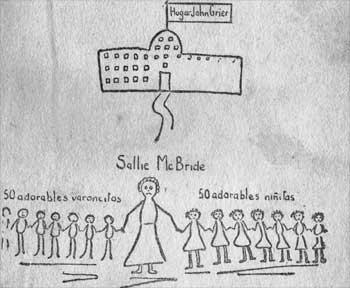 Hogar John Grier
Sallie McBride
50 adorables varoncitos 50 adorables niñitas